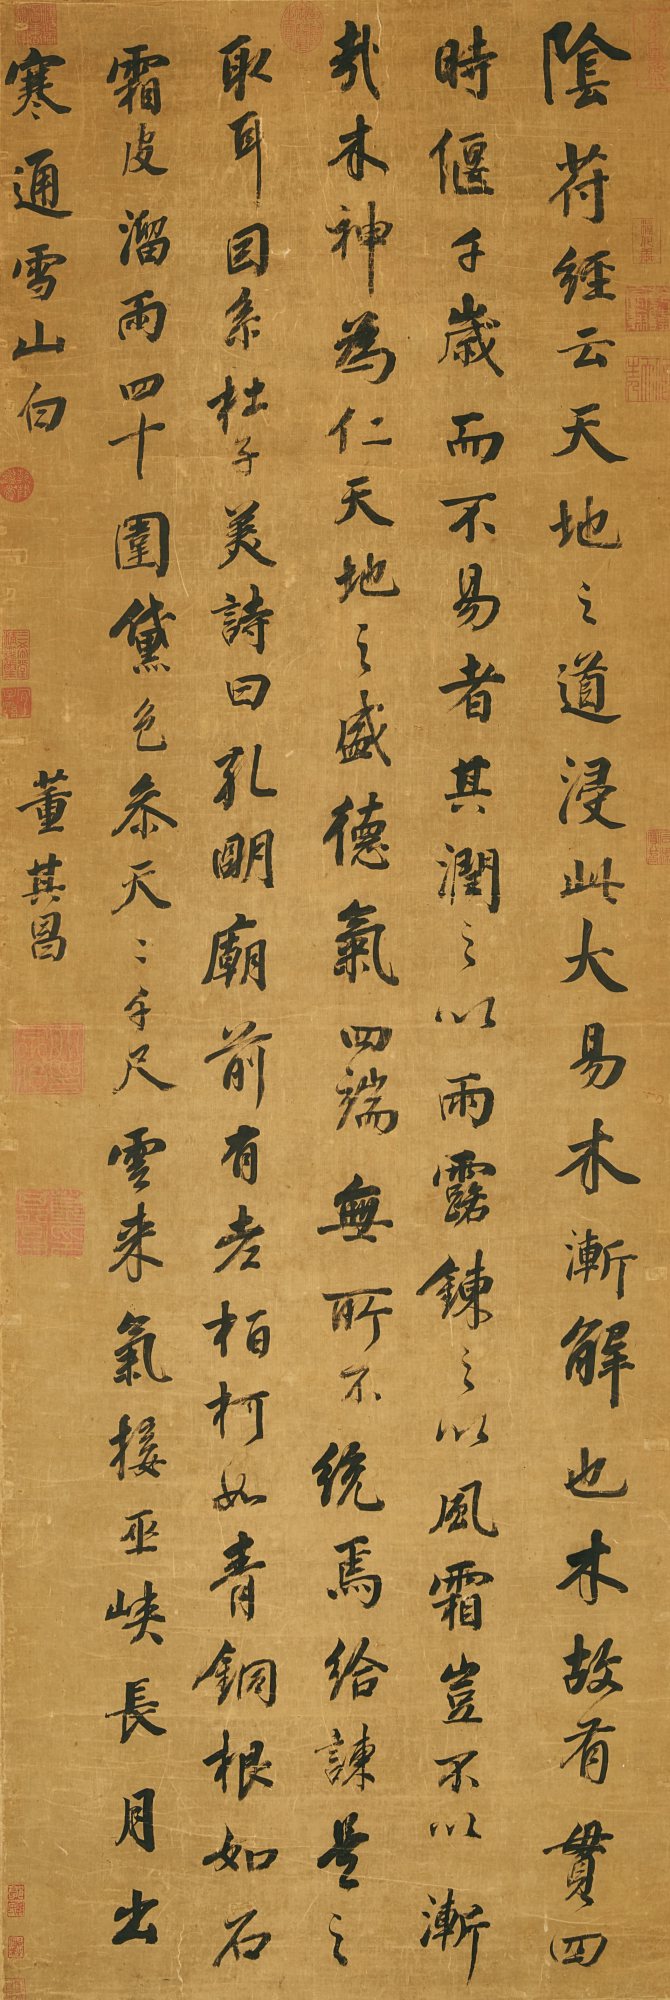 陰符經云天地之道浸此大易木漸解也木故有貫四
時偃千歲而不易者其潤之以雨露鍊之以風霜豈不以漸
哉木神為仁天地之盛德氣四端無所不統焉給諫是之
取耳因系杜子美詩曰孔明廟前有老柏柯如青銅根如石
霜皮溜雨四十圍黛色叅天〻千尺雲来氣接巫峽長月出
寒通雪山白
董其昌